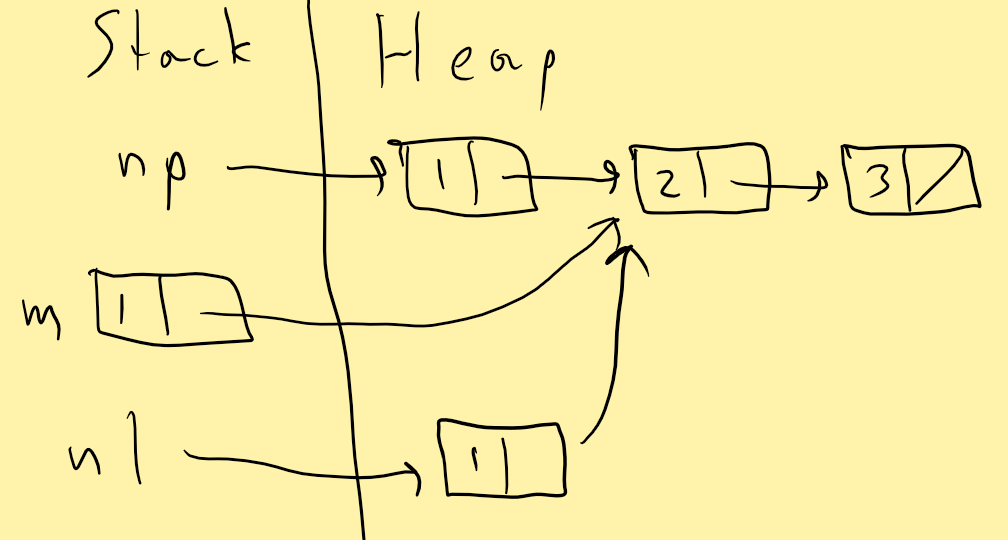 Stack Heap
np 1 2 3
m 1
n1 1